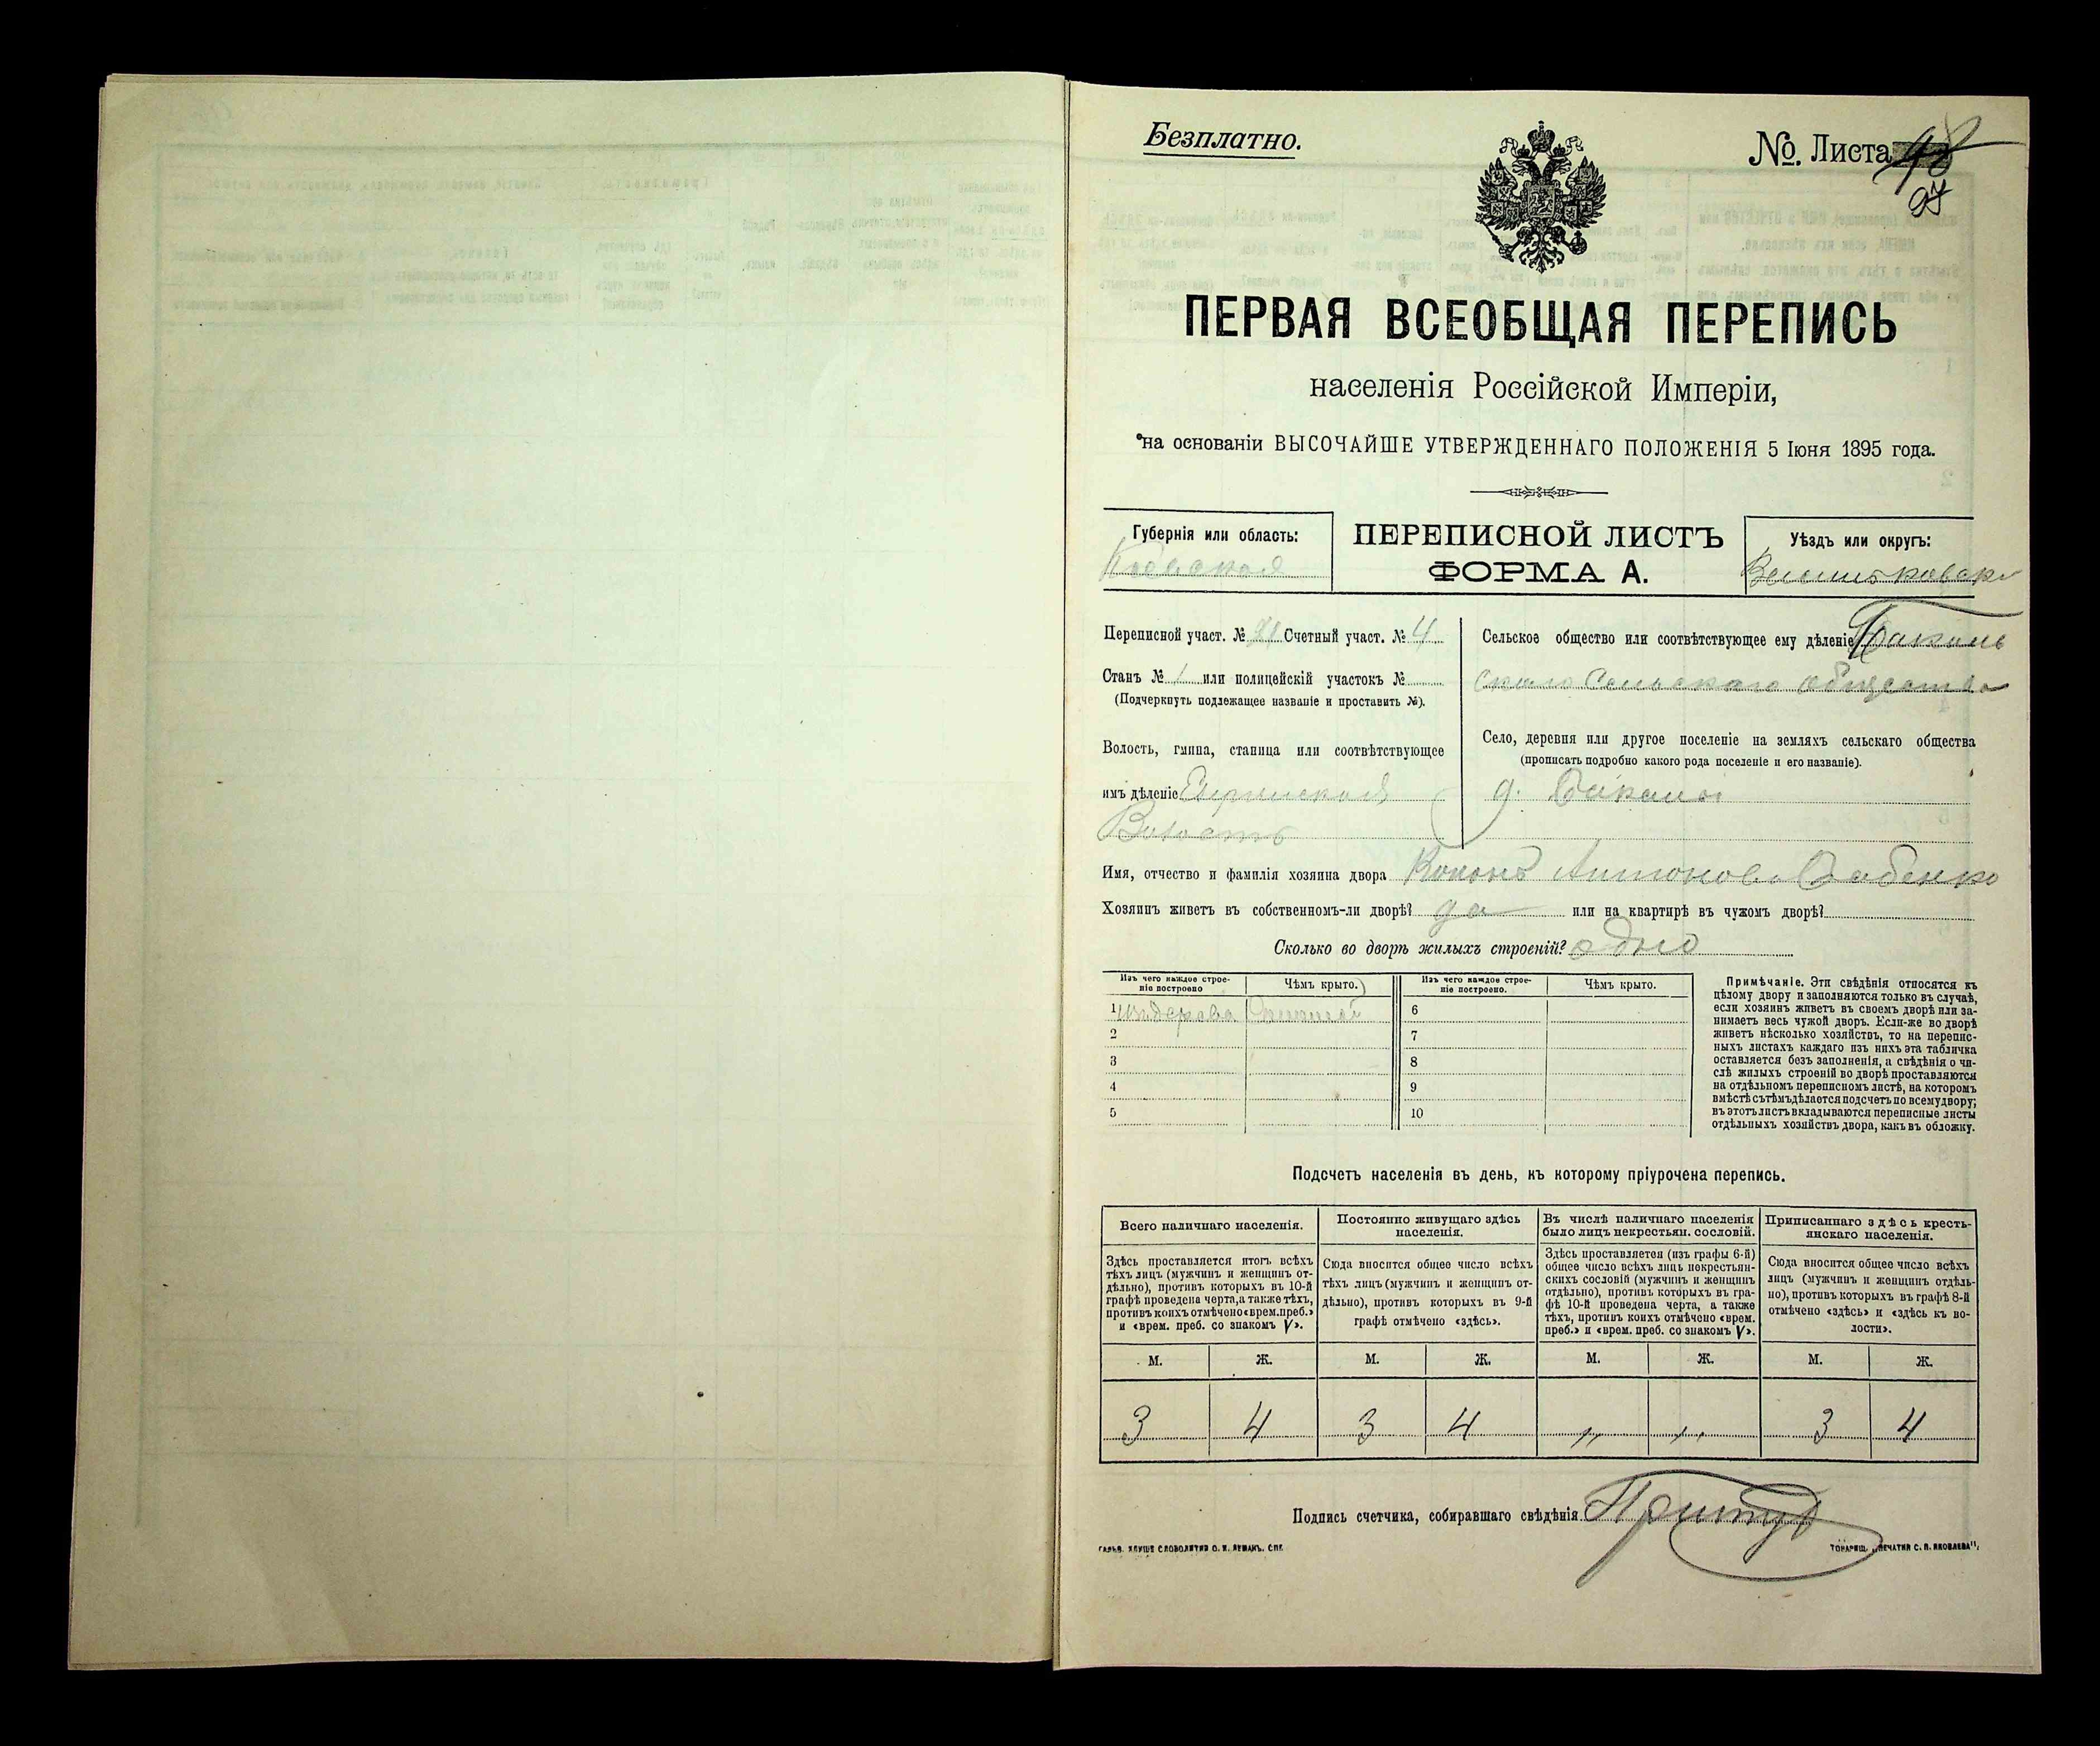 Безплатно.
№. Листа 98
97
ПЕРВАЯ ВСЕОБЩАЯ ПЕРЕПИСЬ
населенія Россійской Имперіи,
на основаніи ВЫСОЧАЙШЕ УТВЕРЖДЕННАГО ПОЛОЖЕНІЯ 5 Іюня 1895 года.
Губернія или область:
Кіевская
ПЕРЕПИСНОЙ ЛИСТЪ
ФОРМА А.
Уѣздъ или округъ:
Переписной участ. № Счетный участ. № 4
Станъ № 1 или полицейскій участокъ №
(Подчеркнуть подлежащее названіе и проставить №).
Волость, гмина, станица или соотвѣтствующее
имъ дѣленіе
Волость
Сельское общество или соотвѣтствующее ему дѣленіе
скаго Сельскаго общества
Село, деревня или другое поселеніе на земляхъ сельскаго общества
(прописать подробно какого рода поселеніе и его названіе).
д.
Имя, отчество и фамилія хозяина двора Кононъ Антоновъ
Хозяинъ живетъ въ собственномъ-ли дворѣ? да или на квартирѣ въ чужомъ дворѣ?
Сколько во дворѣ жилыхъ строеній? одно
Изъ чего каждое строе-
ніе построено
Чѣмъ крыто.
Изъ чего каждое строе-
ніе построено.
Чѣмъ крыто.
1 изъ дерева Соломой
6
2
7
3
8
4
9
5
10
Примѣчаніе. Эти свѣдѣнія относятся къ
цѣлому двору и заполняются только въ случаѣ,
если хозяинъ живетъ въ своемъ дворѣ или за-
нимаетъ весь чужой дворъ. Если-же во дворѣ
живетъ нѣсколько хозяйствъ, то на перепис-
ныхъ листахъ каждаго изъ нихъ эта табличка
оставляется безъ заполненія, а свѣдѣнія о чи-
слѣ жилыхъ строеній во дворѣ проставляются
на отдѣльномъ переписномъ листѣ, на которомъ
вмѣстѣ съ тѣмъ дѣлается подсчетъ по всему двору;
въ этотъ листъ вкладываются переписные листы
отдѣльныхъ хозяйствъ двора, какъ въ обложку.
Подсчетъ населенія въ день, къ которому пріурочена перепись.
Всего наличнаго населенія.
Здѣсь проставляется итогъ всѣхъ
тѣхъ лицъ (мужчинъ и женщинъ от-
дѣльно), противъ которыхъ въ 10-й
графѣ проведена черта, а также тѣхъ,
противъ коихъ отмѣчено «врем. преб.»
и «врем. преб. со знакомъ V».
Постоянно живущаго здѣсь
населенія.
Сюда вносится общее число всѣхъ
тѣхъ лицъ (мужчинъ и женщинъ от-
дѣльно), противъ которыхъ въ 9-й
графѣ отмѣчено «здѣсь».
Въ числѣ наличнаго населенія
было лицъ некрестьян. сословій.
Здѣсь проставляется (изъ графы 6-й)
общее число всѣхъ лицъ некрестьян-
скихъ сословій (мужчинъ и женщинъ
отдѣльно), противъ которыхъ въ гра-
фѣ 10-й проведена черта, а также
тѣхъ, противъ коихъ отмѣчено «врем.
преб.» и «врем. преб. со знакомъ V».
Приписаннаго здѣсь кресть-
янскаго населенія.
Сюда вносится общее число всѣхъ
лицъ (мужчинъ и женщинъ отдѣль-
но), противъ которыхъ въ графѣ 8-й
отмѣчено «здѣсь» и «здѣсь къ во-
лости».
М. Ж. М. Ж. М. Ж. М. Ж.
3 4 3 4 ,, ,, 3 4
Подпись счетчика, собиравшаго свѣдѣнія
ТОВАРИЩ. „ПЕЧАТНЯ С. П. ЯКОВЛЕВА",